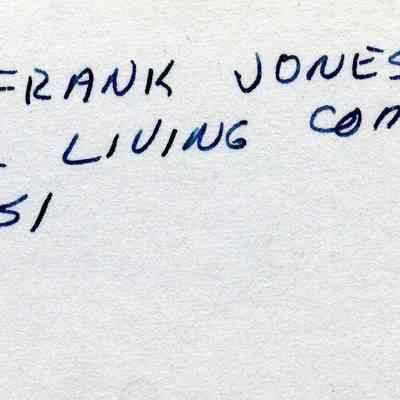 FRANK JONES
LIVING COM
51